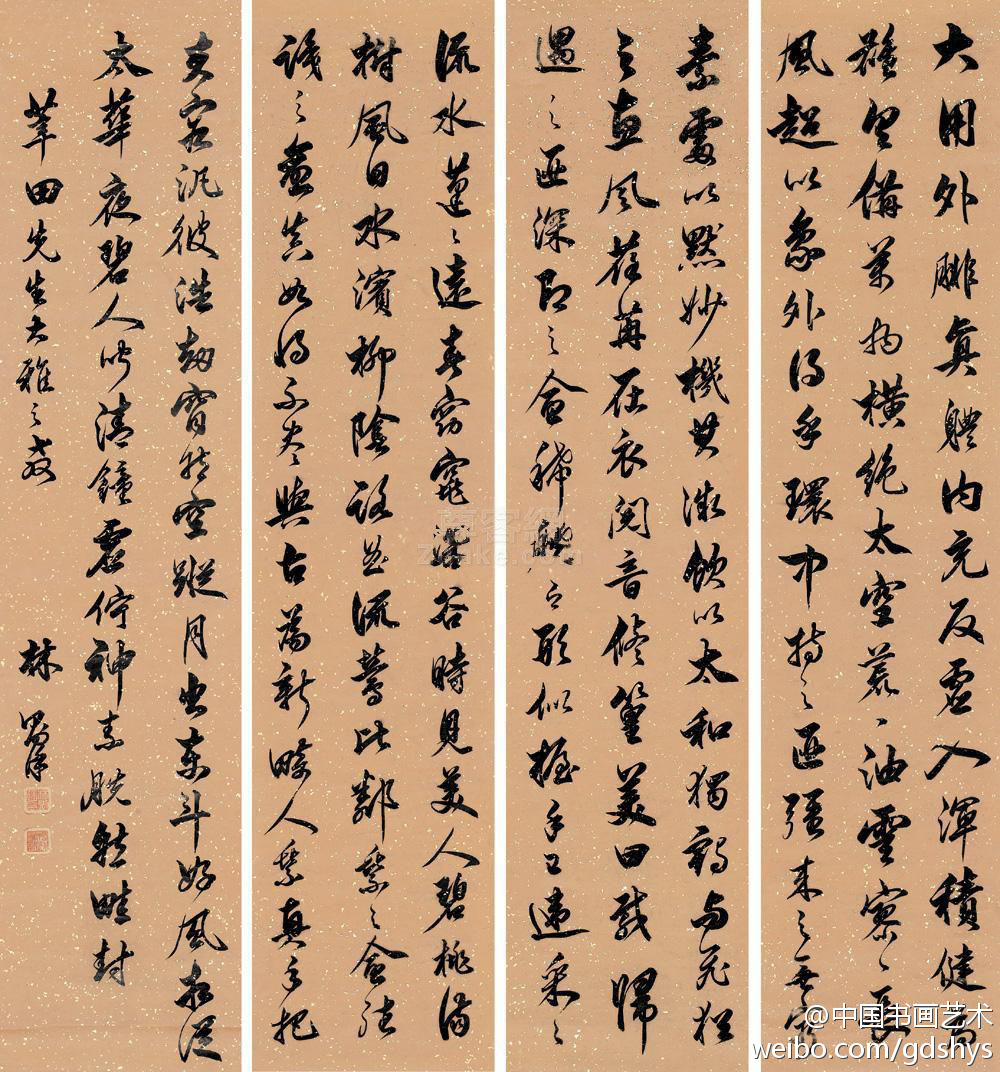 大用外腓真體內充反虛入渾積健為
雄具備萬物橫絕太空荒荒油雲寥寥長
風超以象外得乎環中持之匪強來之無窮
素處以默妙機其微飲以太和獨鶴與飛猶
之惠風荏苒在衣閱音修篁美曰載歸
遇之匪深即之愈稀脫有形似握手已違采采
流水蓬蓬遠春窈窕深谷時見美人碧桃滿
樹風日水濱柳陰路曲流鶯比鄰乘之愈往
識之愈真如將不盡與古為新畸人乘真手把
芙蓉汎彼浩劫窅然空蹤月出東斗好風相從
太華夜碧人聞清鐘虛佇神素脫然畦封
田先生大雅之教
林則徐
@中国书画艺术
weibo.com/gdshys